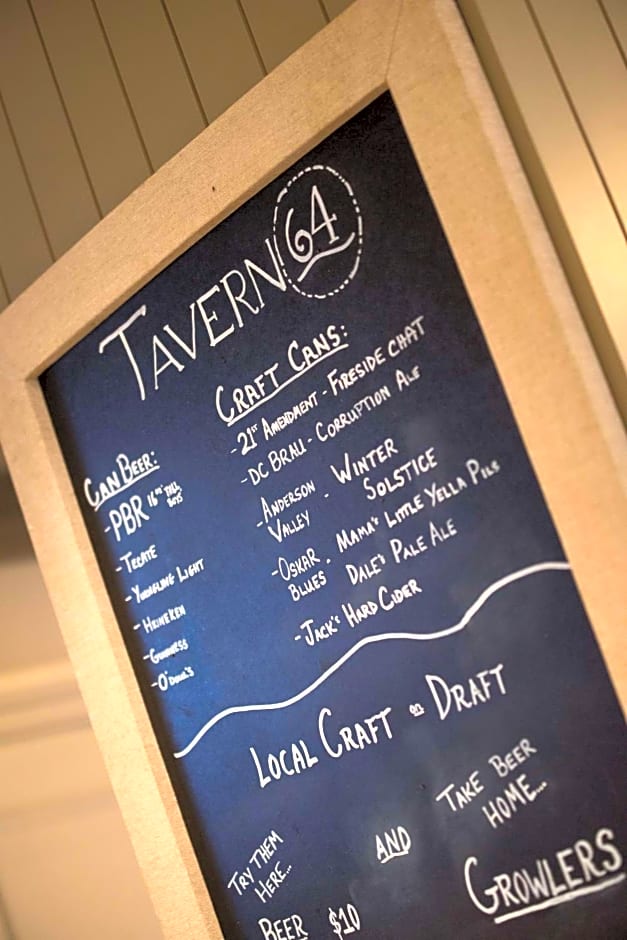 TAVERN 64
CAN BEER:
- PBR 16oz TALL BOYS
- TECATE
- YUENGLING LIGHT
- HEINEKEN
- GUINNESS
- O'DOUL'S
CRAFT CANS:
- 21ST AMENDMENT - FIRESIDE CHAT
- DC BRAU - CORRUPTION ALE
- ANDERSON VALLEY - WINTER SOLSTICE
- OSKAR BLUES - MAMA'S LITTLE YELLA PILS
DALE'S PALE ALE
- JACK'S HARD CIDER
LOCAL CRAFT on DRAFT
TRY THEM
HERE...
AND
TAKE BEER
HOME...
BEER $10
GROWLERS